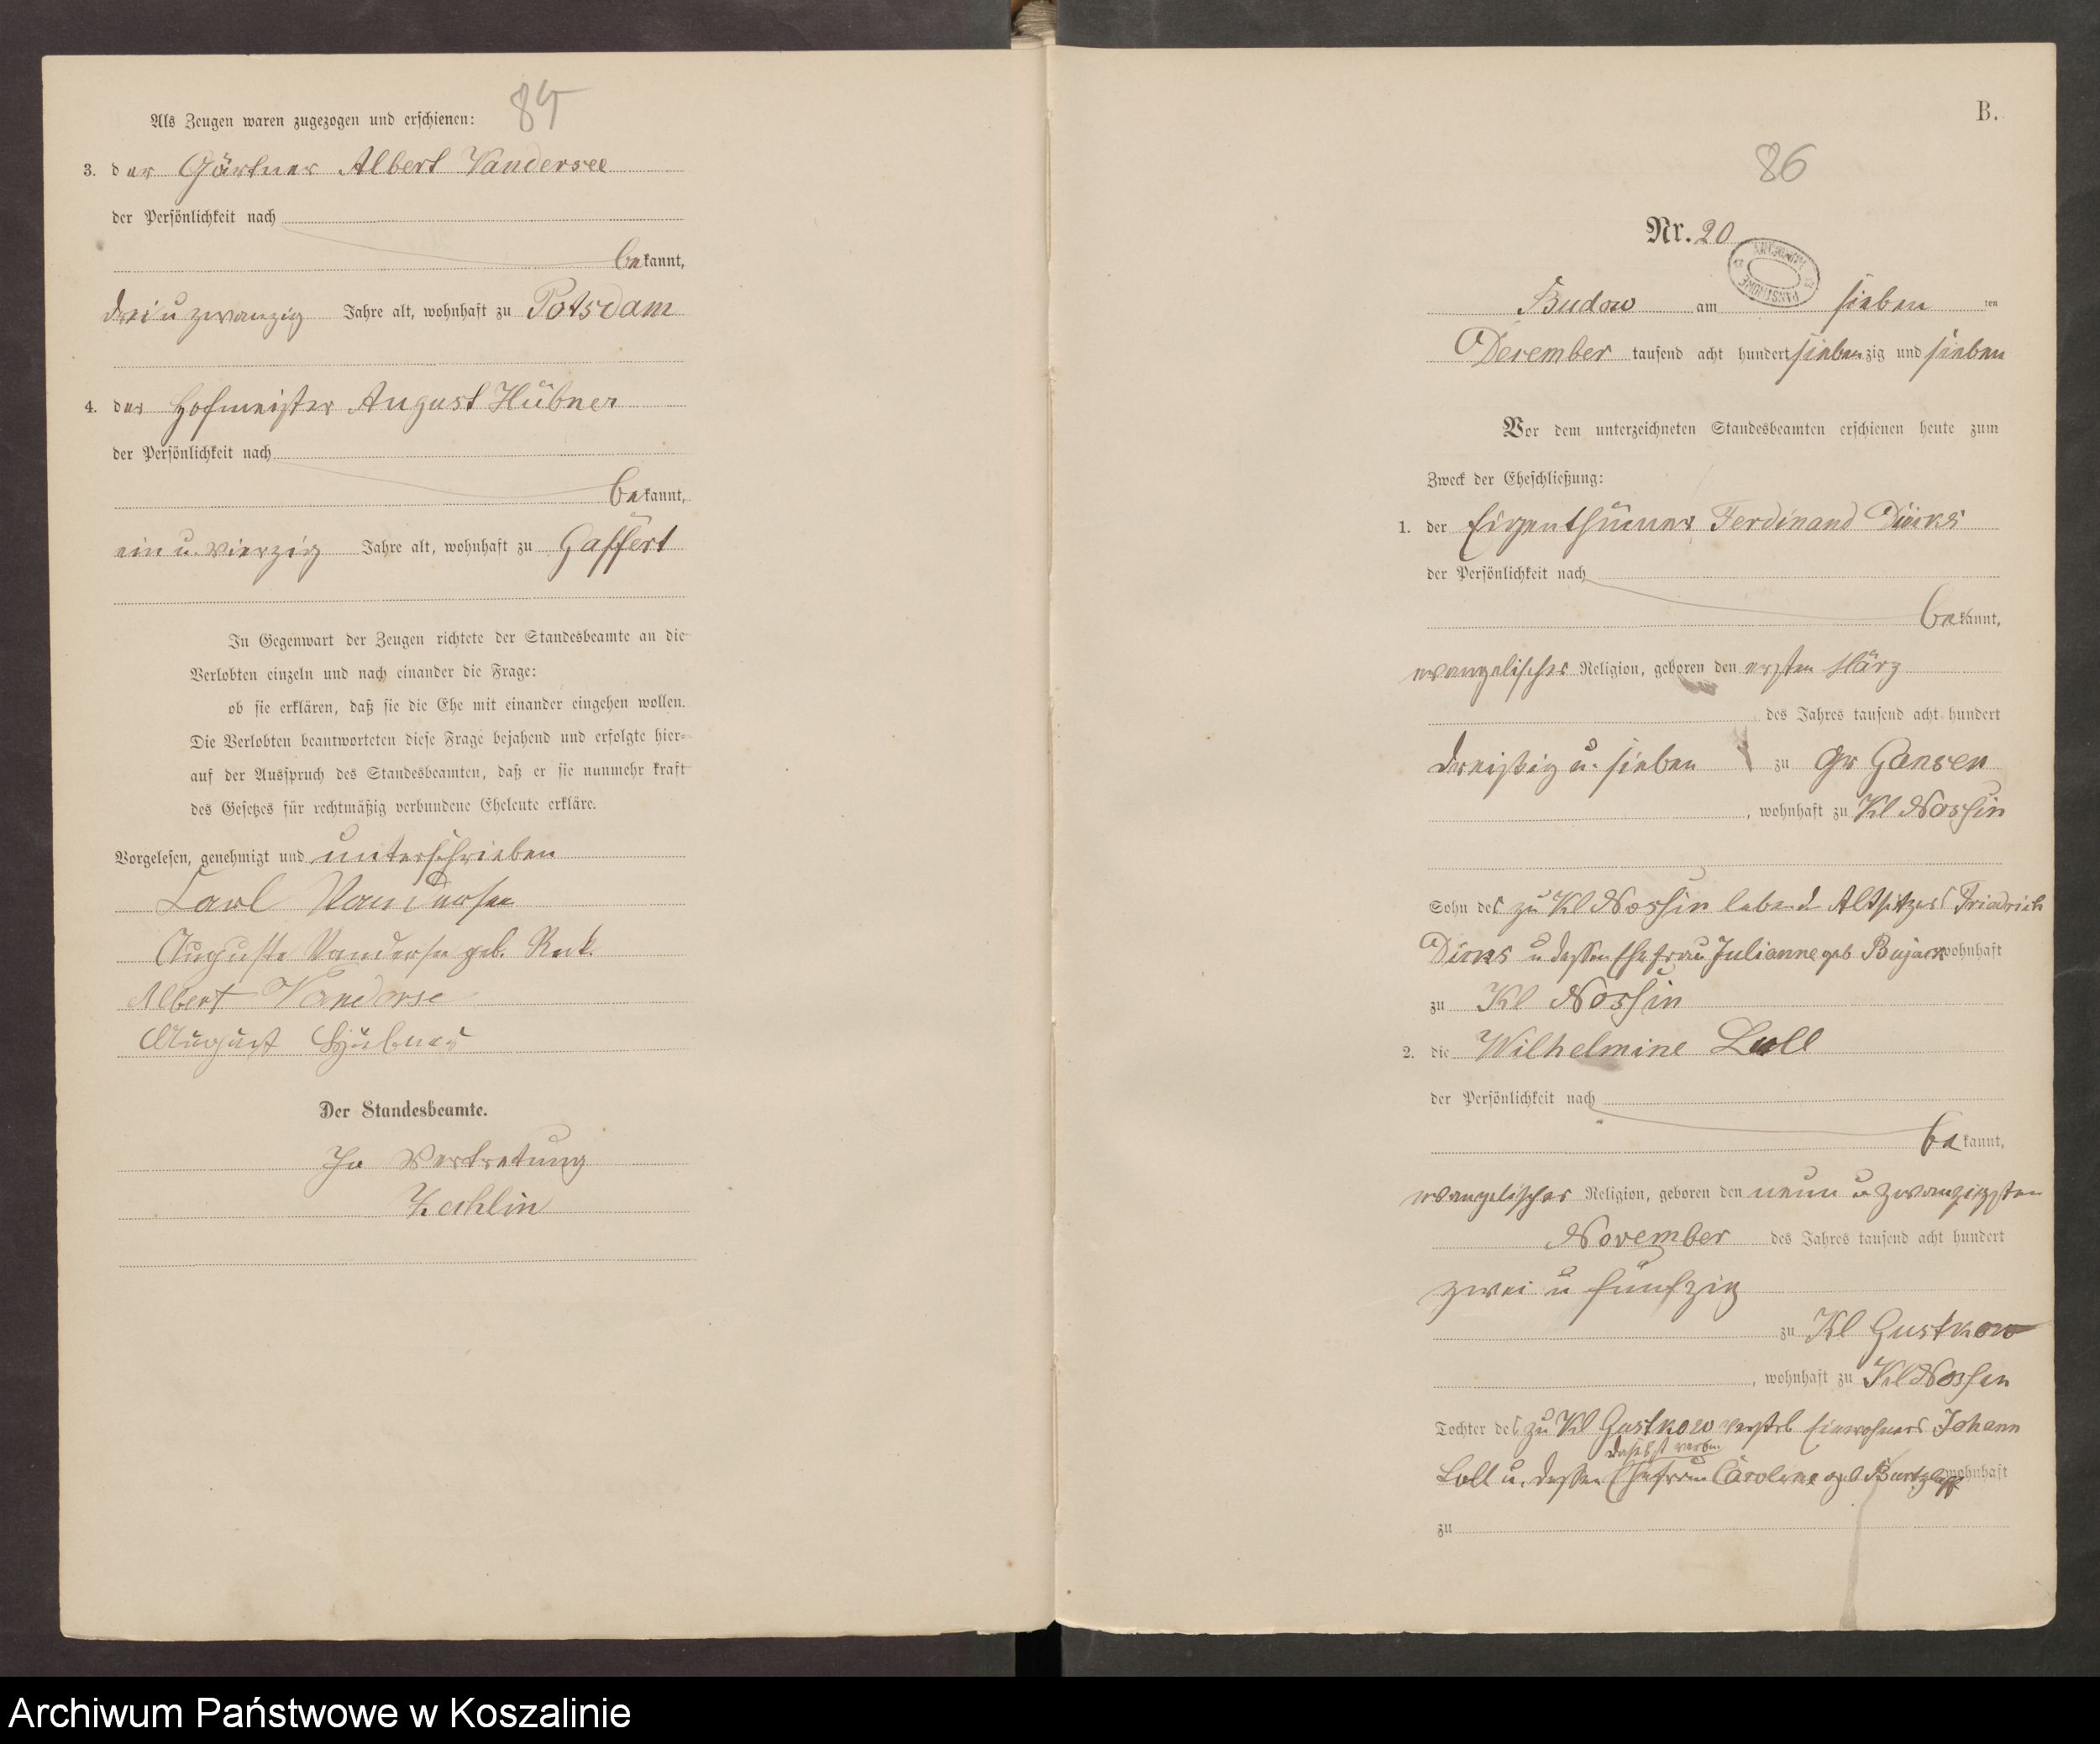 85
Als Zeugen waren zugezogen und erschienen:
3. der Gärtner Albert Vandersee
der Persönlichkeit nach
bekannt,
drei u zwanzig Jahre alt, wohnhaft zu Potsdam
4. der Hofmeister August Hübner
der Persönlichkeit nach
bekannt,
ein u. vierzig Jahre alt, wohnhaft zu Gaffert
In Gegenwart der Zeugen richtete der Standesbeamte an die
Verlobten einzeln und nach einander die Frage:
ob sie erklären, daß sie die Ehe mit einander eingehen wollen.
Die Verlobten beantworteten diese Frage bejahend und erfolgte hier-
auf der Ausspruch des Standesbeamten, daß er sie nunmehr kraft
des Gesetzes für rechtmäßig verbundene Eheleute erkläre.
Vorgelesen, genehmigt und unterschrieben
Carl Vandersee
Auguste Vandersee geb.
Albert Vanderse
August Hübner
Der Standesbeamte.
In Vertretung
B.
86
Nr. 20
Budow am sieben ten
Dezember tausend acht hundert siebenzig und sieben
Vor dem unterzeichneten Standesbeamten erschienen heute zum
Zweck der Eheschließung:
1. der Eigenthümer Ferdinand Dirks
der Persönlichkeit nach
bekannt,
evangelischer Religion, geboren den ersten März
des Jahres tausend acht hundert
dreißig u. sieben zu Gr Gansen
, wohnhaft zu Kl Nossin
Sohn des zu Kl Nossin lebend Altsitzers Friedrich
Dirks u dessen Ehefrau Julianne geb Bujack wohnhaft
zu Kl Nossin
2. die Wilhelmine Loll
der Persönlichkeit nach
bekannt,
evangelischer Religion, geboren den neun u zwanzigsten
November des Jahres tausend acht hundert
zwei u fünfzig
zu Kl Gustkow
, wohnhaft zu Kl Nossin
Tochter des zu Kl Gustkow verstorb Einwohners Johann
daselbst verstorb
Loll u. dessen Ehefrau Caroline geb Burtzlaff wohnhaft
zu
Archiwum Państwowe w Koszalinie